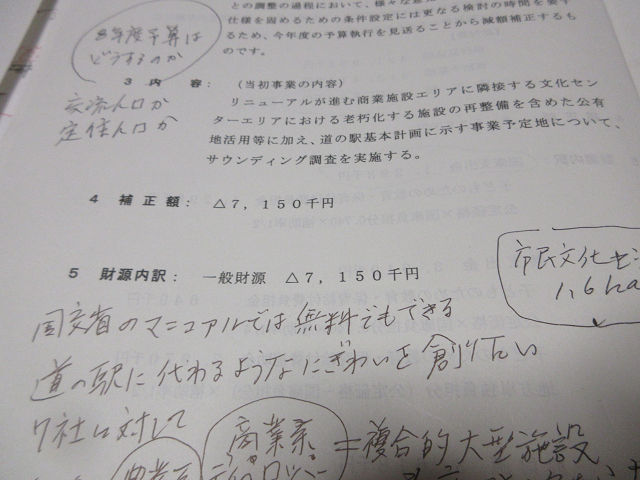 との調整の過程において、様々な
仕様を固めるための条件設定には更なる検討の時間を要す
るため、今年度の予算執行を見送ることから減額補正するも
のです。
8年度予算は
どうするのか
3 内 容： (当初事業の内容)
リニューアルが進む商業施設エリアに隣接する文化セン
ターエリアにおける老朽化する施設の再整備を含めた公有
地活用等に加え、道の駅基本計画に示す事業予定地について、
サウンディング調査を実施する。
交流人口か
定住人口か
4 補正額： △7，150千円
5 財源内訳： 一般財源 △7，150千円
市民文化セン
1.6ha
国交省のマニュアルでは無料でもできる
道の駅に代わるようなにぎわいを創りたい
7社に対して
商業系
デベロッパー
＝複合的大型施設